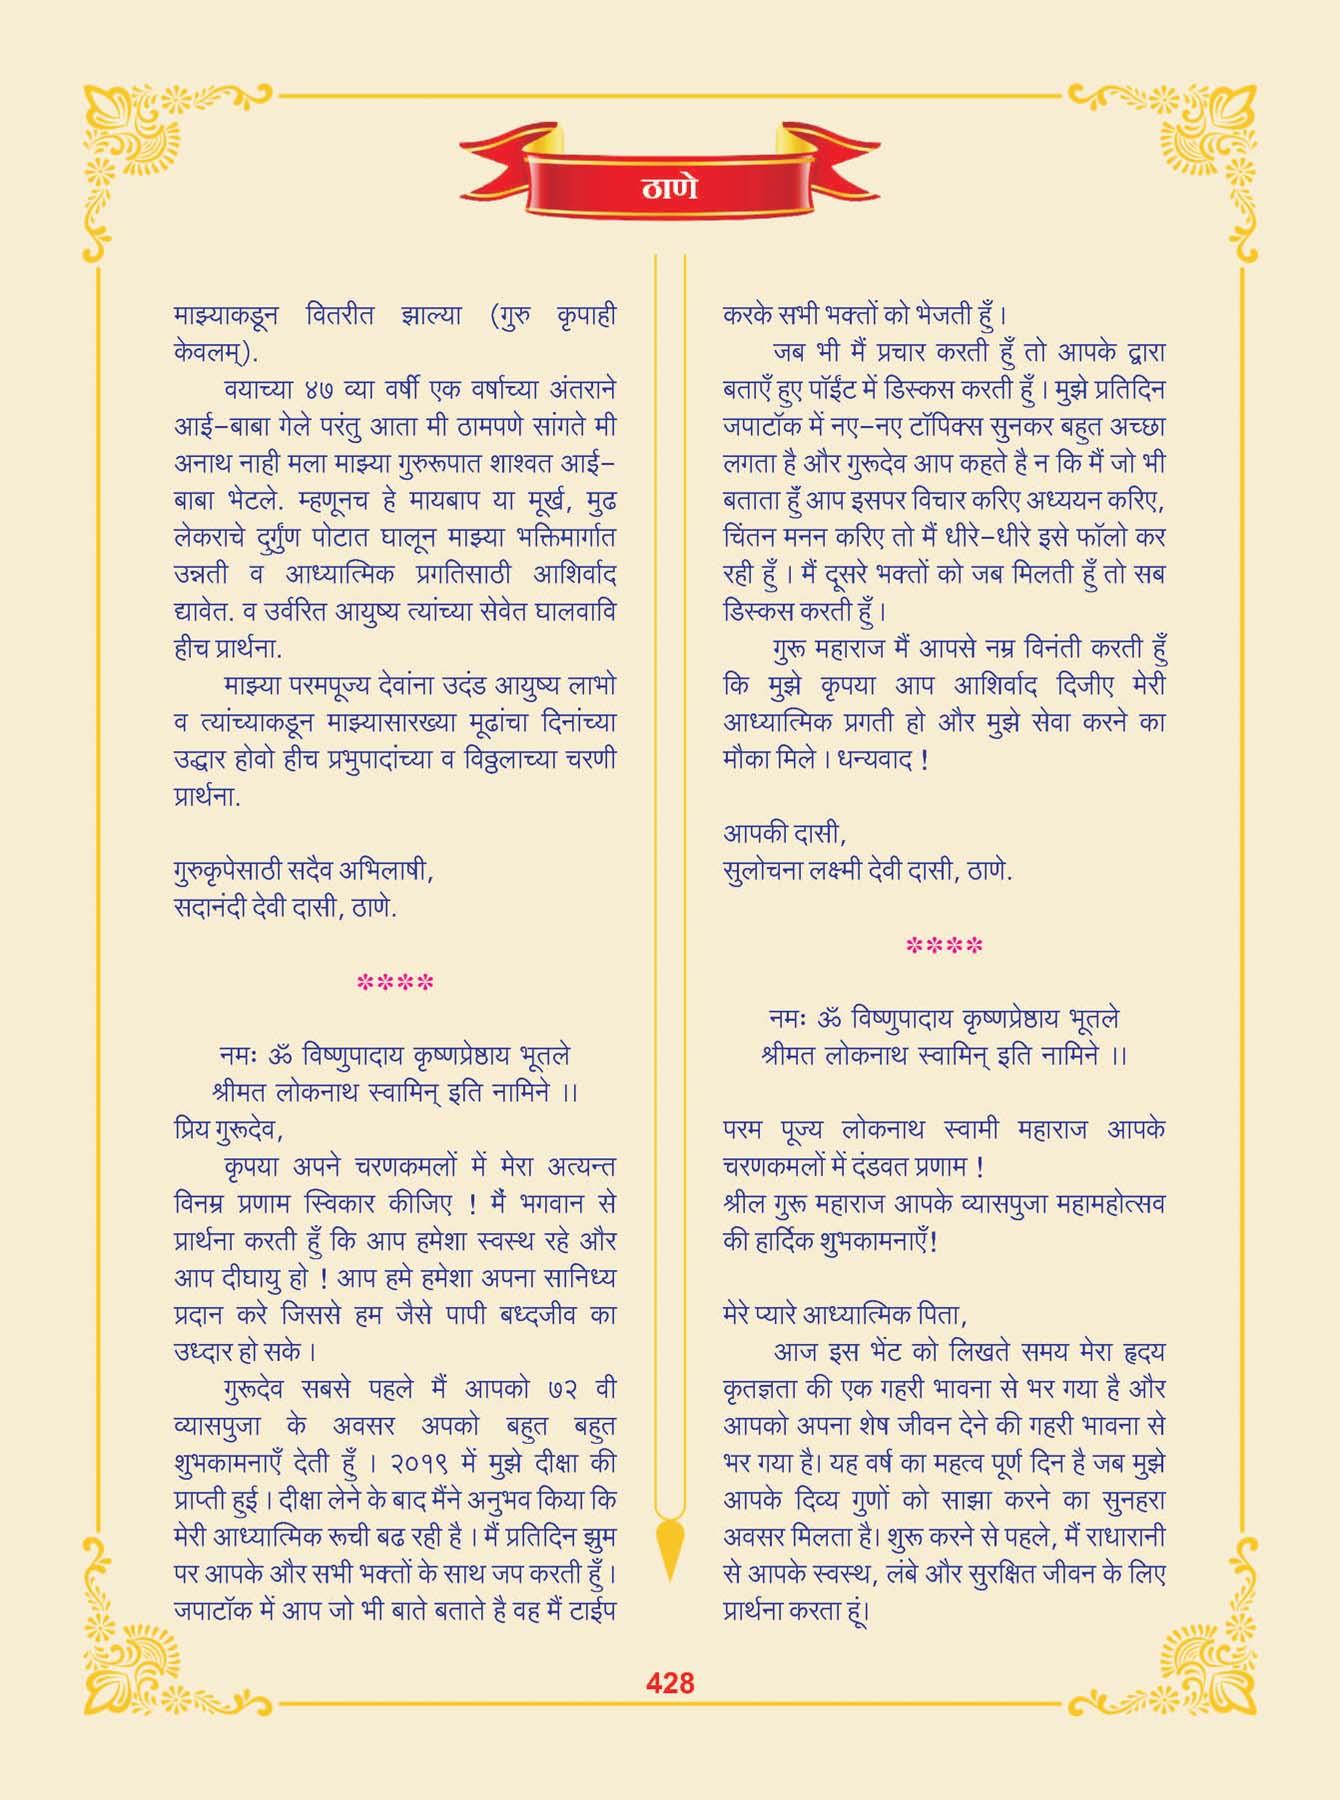 ठाणे
माझ्याकडून वितरीत झाल्या (गुरु कृपाही
केवलम्).
वयाच्या ४७ व्या वर्षी एक वर्षाच्या अंतराने
आई-बाबा गेले परंतु आता मी ठामपणे सांगते मी
अनाथ नाही मला माझ्या गुरुरूपात शाश्वत आई-
बाबा भेटले. म्हणूनच हे मायबाप या मूर्ख, मुढ
लेकराचे दुर्गुण पोटात घालून माझ्या भक्तिमार्गात
उन्नती व आध्यात्मिक प्रगतिसाठी आशिर्वाद
द्यावेत. व उर्वरित आयुष्य त्यांच्या सेवेत घालवावि
हीच प्रार्थना.
माझ्या परमपूज्य देवांना उदंड आयुष्य लाभो
व त्यांच्याकडून माझ्यासारख्या मूढांचा दिनांच्या
उद्धार होवो हीच प्रभुपादांच्या व विठ्ठलाच्या चरणी
प्रार्थना.
गुरुकृपेसाठी सदैव अभिलाषी,
सदानंदी देवी दासी, ठाणे.
****
नमः ॐ विष्णुपादाय कृष्णप्रेष्ठाय भूतले
श्रीमत लोकनाथ स्वामिन् इति नामिने ।।
प्रिय गुरूदेव,
कृपया अपने चरणकमलों में मेरा अत्यन्त
विनम्र प्रणाम स्विकार कीजिए ! मैं भगवान से
प्रार्थना करती हुँ कि आप हमेशा स्वस्थ रहे और
आप दीघायु हो ! आप हमे हमेशा अपना सानिध्य
प्रदान करे जिससे हम जैसे पापी बध्दजीव का
उध्दार हो सके ।
गुरूदेव सबसे पहले मैं आपको ७२ वी
व्यासपुजा के अवसर अपको बहुत बहुत
शुभकामनाएँ देती हुँ । २०१९ में मुझे दीक्षा की
प्राप्ती हुई । दीक्षा लेने के बाद मैंने अनुभव किया कि
मेरी आध्यात्मिक रूची बढ रही है । मैं प्रतिदिन झुम
पर आपके और सभी भक्तों के साथ जप करती हुँ ।
जपाटॉक में आप जो भी बाते बताते है वह मैं टाईप
करके सभी भक्तों को भेजती हुँ ।
जब भी मैं प्रचार करती हुँ तो आपके द्वारा
बताएँ हुए पॉईंट में डिस्कस करती हुँ । मुझे प्रतिदिन
जपाटॉक में नए-नए टॉपिक्स सुनकर बहुत अच्छा
लगता है और गुरूदेव आप कहते है न कि मैं जो भी
बताता हुँ आप इसपर विचार करिए अध्ययन करिए,
चिंतन मनन करिए तो मैं धीरे-धीरे इसे फॉलो कर
रही हुँ । मैं दूसरे भक्तों को जब मिलती हुँ तो सब
डिस्कस करती हुँ ।
गुरू महाराज मैं आपसे नम्र विनंती करती हुँ
कि मुझे कृपया आप आशिर्वाद दिजीए मेरी
आध्यात्मिक प्रगती हो और मुझे सेवा करने का
मौका मिले । धन्यवाद !
आपकी दासी,
सुलोचना लक्ष्मी देवी दासी, ठाणे.
****
नमः ॐ विष्णुपादाय कृष्णप्रेष्ठाय भूतले
श्रीमत लोकनाथ स्वामिन् इति नामिने ।।
परम पूज्य लोकनाथ स्वामी महाराज आपके
चरणकमलों में दंडवत प्रणाम !
श्रील गुरू महाराज आपके व्यासपुजा महामहोत्सव
की हार्दिक शुभकामनाएँ!
मेरे प्यारे आध्यात्मिक पिता,
आज इस भेंट को लिखते समय मेरा हृदय
कृतज्ञता की एक गहरी भावना से भर गया है और
आपको अपना शेष जीवन देने की गहरी भावना से
भर गया है। यह वर्ष का महत्व पूर्ण दिन है जब मुझे
आपके दिव्य गुणों को साझा करने का सुनहरा
अवसर मिलता है। शुरू करने से पहले, मैं राधारानी
से आपके स्वस्थ, लंबे और सुरक्षित जीवन के लिए
प्रार्थना करता हूं।
428